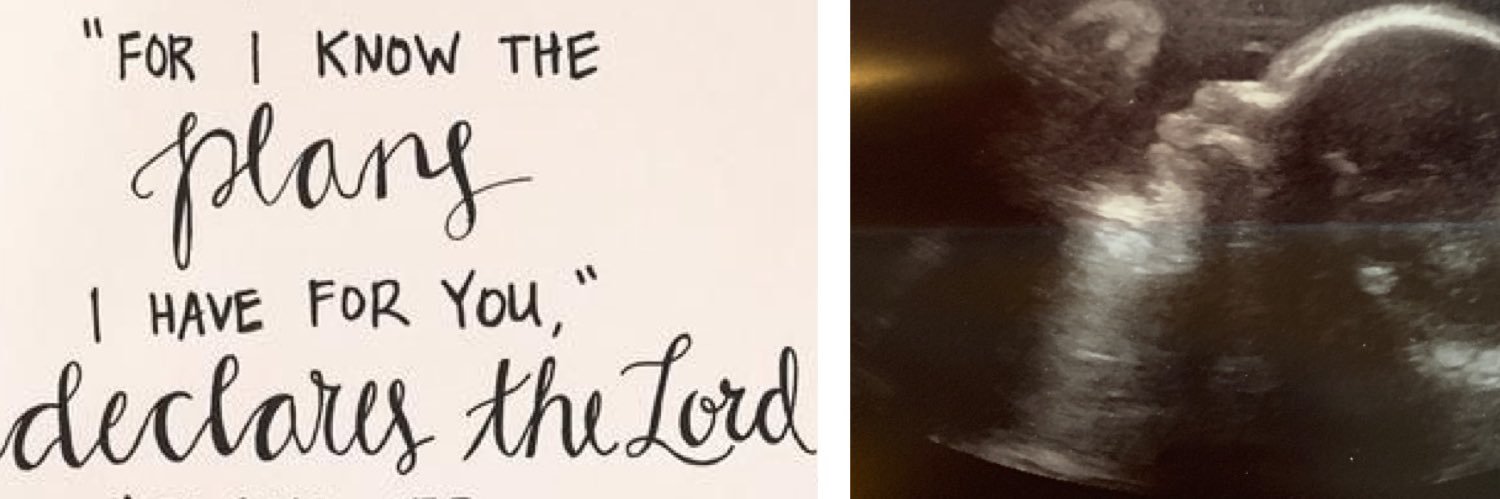 "FOR I KNOW THE
plans
I HAVE FOR YOU,"
declares the Lord